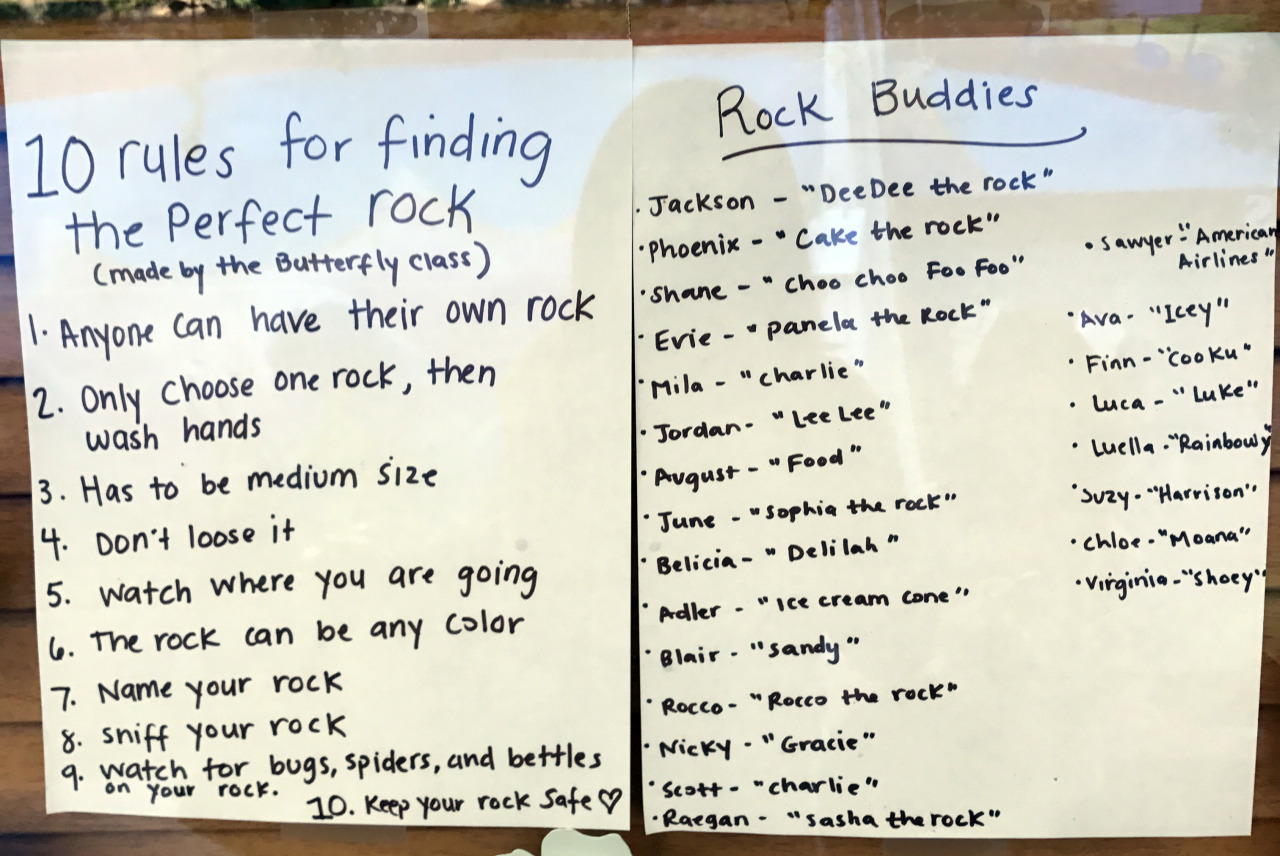 10 rules for finding
the Perfect rock
(made by the Butterfly class)
1. Anyone can have their own rock
2. Only choose one rock, then
wash hands
3. Has to be medium size
4. Don't loose it
5. watch where you are going
6. The rock can be any color
7. Name your rock
8. sniff your rock
9. watch for bugs, spiders, and bettles
on your rock.
10. Keep your rock Safe ♡
Rock Buddies
· Jackson - "DeeDee the rock"
· Phoenix - "Cake the rock"
· Shane - "Choo choo Foo Foo"
· Evie - "panela the Rock"
· Mila - "charlie"
· Jordan - "Lee Lee"
· August - "Food"
· June - "Sophia the rock"
· Belicia - "Delilah"
· Adler - "Ice cream cone"
· Blair - "Sandy"
· Rocco - "Rocco the rock"
· Nicky - "Gracie"
· Scott - "charlie"
· Raegan - "sasha the rock"
· Sawyer - "American
Airlines"
· Ava - "Icey"
· Finn - "CooKu"
· Luca - "Luke"
· Luella - "Rainbowy
· Suzy - "Harrison"
· Chloe - "Moana"
· Virginia - "Shoey"